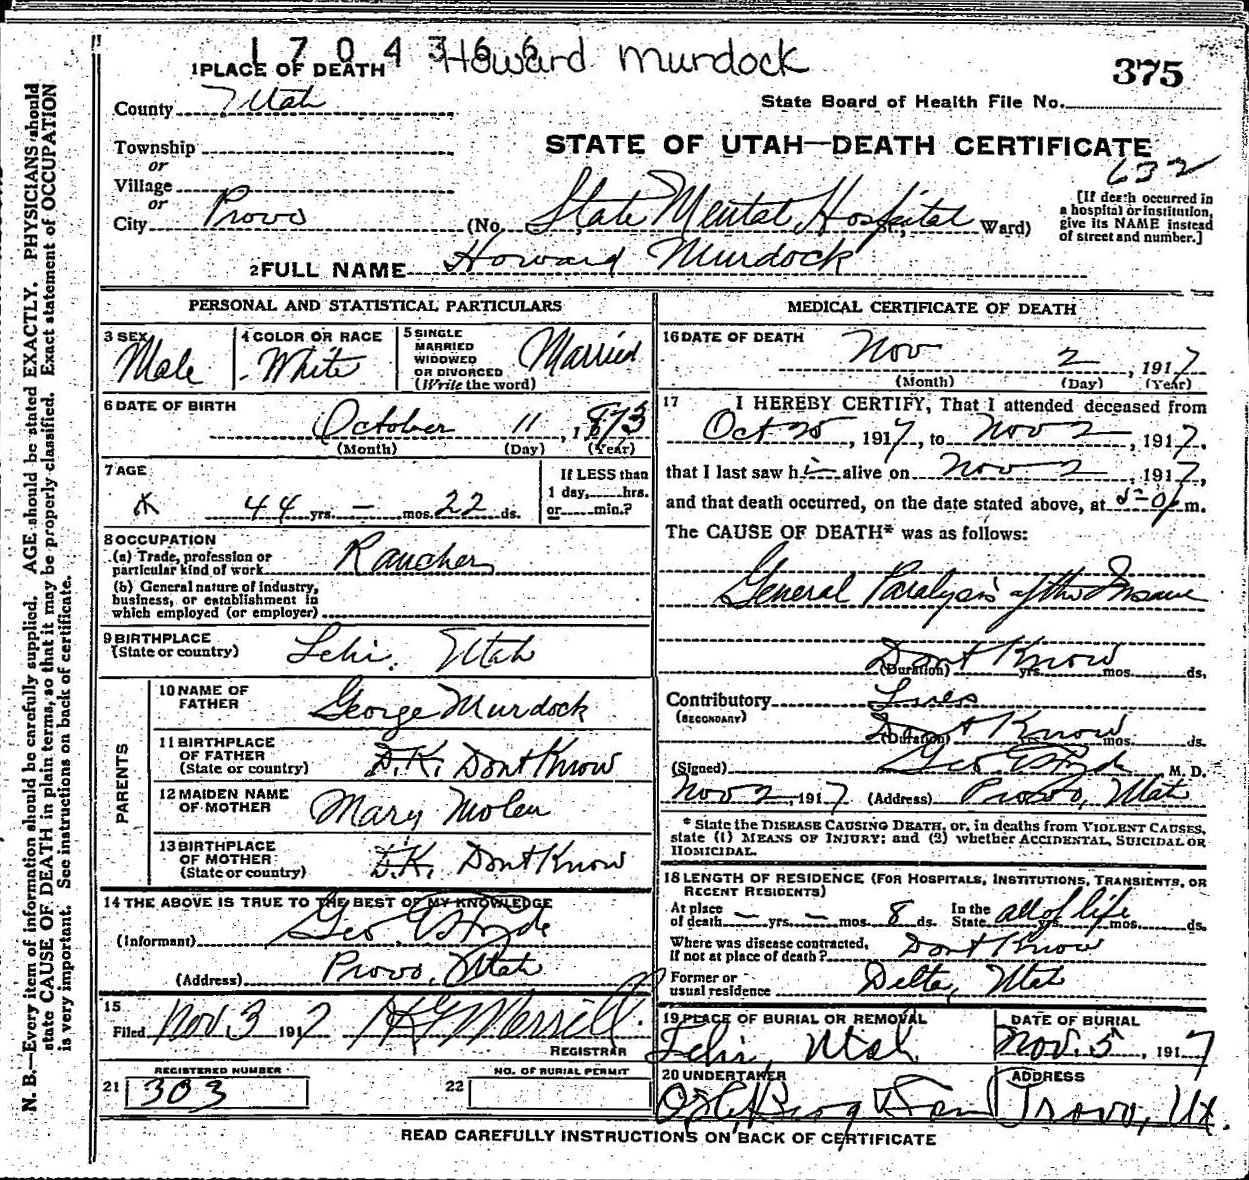 1704366 Howard Murdock
375
1 PLACE OF DEATH
County Utah
State Board of Health File No.
Township
or
Village
or
City Provo
STATE OF UTAH—DEATH CERTIFICATE
632
(No. State Mental Hospital St.; Ward)
[If death occurred in
a hospital or institution,
give its NAME instead
of street and number.]
2 FULL NAME Howard Murdock
PERSONAL AND STATISTICAL PARTICULARS
3 SEX
Male
4 COLOR OR RACE
White
5 SINGLE
MARRIED
WIDOWED
OR DIVORCED
(Write the word)
Married
6 DATE OF BIRTH
October 11, 1873
(Month) (Day) (Year)
7 AGE
44 yrs. — mos. 22 ds.
If LESS than
1 day, hrs.
or min.?
8 OCCUPATION
(a) Trade, profession or
particular kind of work Rancher
(b) General nature of industry,
business, or establishment in
which employed (or employer)
9 BIRTHPLACE
(State or country) Lehi, Utah
PARENTS
10 NAME OF
FATHER George Murdock
11 BIRTHPLACE
OF FATHER
(State or country) D.K. Dont Know
12 MAIDEN NAME
OF MOTHER Mary Molen
13 BIRTHPLACE
OF MOTHER
(State or country) D.K. Dont Know
14 THE ABOVE IS TRUE TO THE BEST OF MY KNOWLEDGE
(Informant) Geo E Hyde
(Address) Provo, Utah
15
Filed Nov. 3 1917 Merrill
REGISTRAR
REGISTERED NUMBER
21 303
NO. OF BURIAL PERMIT
22
MEDICAL CERTIFICATE OF DEATH
16 DATE OF DEATH
Nov 2, 1917
(Month) (Day) (Year)
17 I HEREBY CERTIFY, That I attended deceased from
Oct 25, 1917, to Nov 2, 1917.
that I last saw him alive on Nov 2, 1917,
and that death occurred, on the date stated above, at m.
The CAUSE OF DEATH* was as follows:
General Paralysis of the Insane
Dont Know
(Duration) yrs. mos. ds.
Contributory Lues
(SECONDARY)
Dont Know
(Duration) yrs. mos. ds.
(Signed) Geo E Hyde M. D.
Nov 2, 1917 (Address) Provo, Utah
* State the DISEASE CAUSING DEATH, or, in deaths from VIOLENT CAUSES,
state (1) MEANS OF INJURY; and (2) whether ACCIDENTAL, SUICIDAL OR
HOMICIDAL.
18 LENGTH OF RESIDENCE (FOR HOSPITALS, INSTITUTIONS, TRANSIENTS, OR
RECENT RESIDENTS)
At place
of death — yrs. — mos. 8 ds. In the
State all of life yrs. mos. ds.
Where was disease contracted,
If not at place of death? Dont Know
Former or
usual residence Delta, Utah
19 PLACE OF BURIAL OR REMOVAL
Lehi, Utah
DATE OF BURIAL
Nov. 5, 1917
20 UNDERTAKER
Berg
ADDRESS
Provo, Ut.
READ CAREFULLY INSTRUCTIONS ON BACK OF CERTIFICATE
N. B.—Every item of information should be carefully supplied. AGE should be stated EXACTLY. PHYSICIANS should
state CAUSE OF DEATH in plain terms, so that it may be properly classified. Exact statement of OCCUPATION
is very important. See instructions on back of certificate.